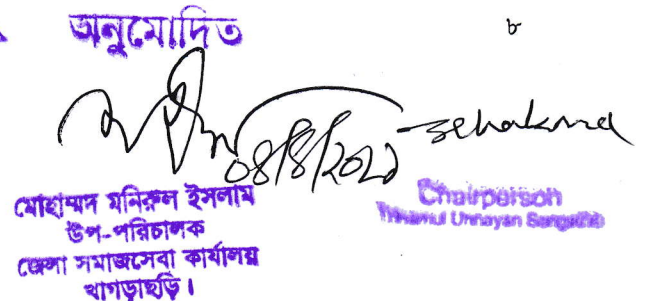 অনুমোদিত
৮
০৪/৪/২০২১
মোহাম্মদ মনিরুল ইসলাম
উপ-পরিচালক
জেলা সমাজসেবা কার্যালয়
খাগড়াছড়ি।
Chairperson
Trinamul Unnayan Sangstha